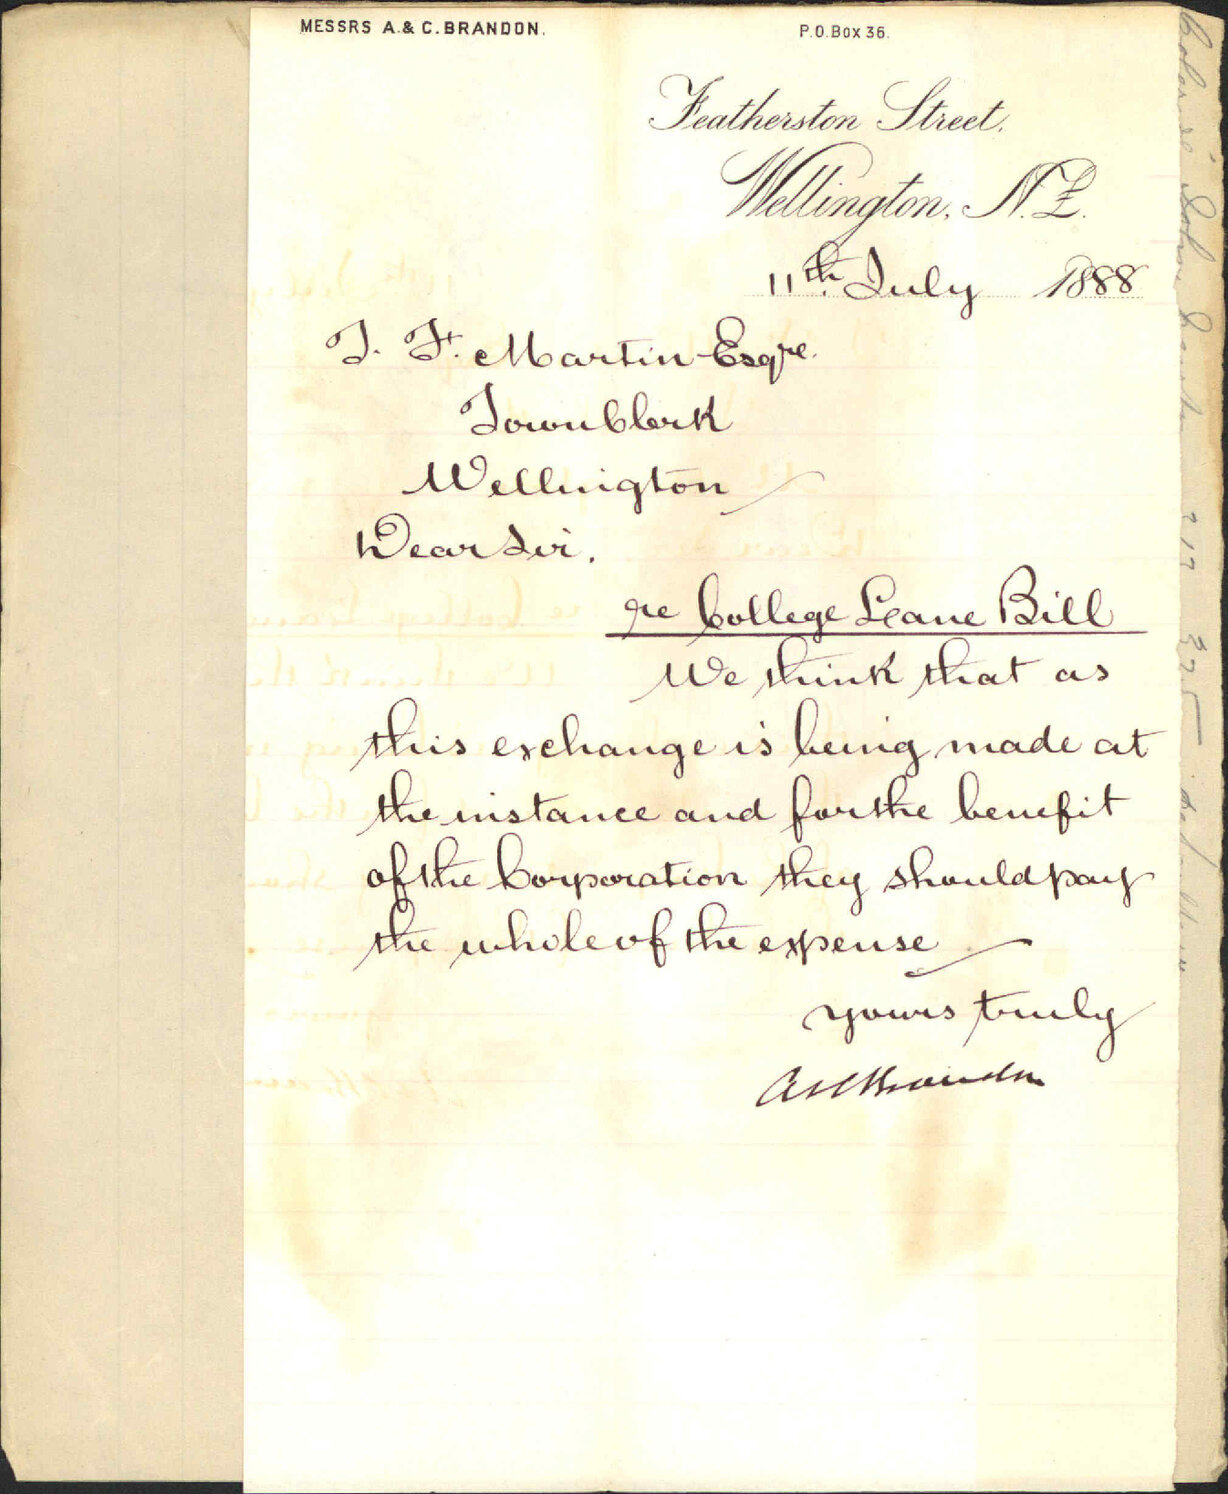 MESSRS A. & C. BRANDON.
P.O. Box 36.
Featherston Street.
Wellington, N.Z.
11th July 1888
J. F. Martin Esqre.
Town Clerk
Wellington
Dear Sir.
re College Leane Bill
We think that as
this exchange is being made at
the instance and for the benefit
of the Corporation they should pay
the whole of the expense
yours truly
A & C Brandon